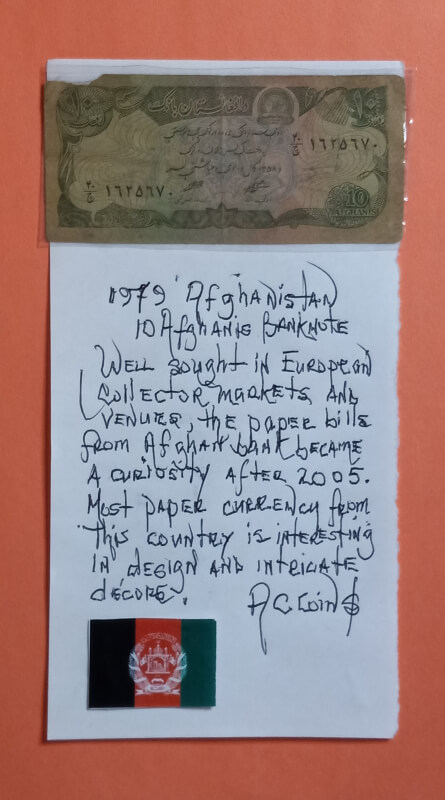 د افغانستان بانک
۲۰ ۱۶۲۵۶۷۰
۲۰ ۱۶۲۵۶۷۰
10
AFGHANIS
1979 Afghanistan
10 Afghanis Banknote
Well sought in European
collector markets and
venues, the paper bills
from Afghan bank became
a curiosity after 2005.
Most paper currency from
this country is interesting
in design and intricate
décore.
A C Coin$